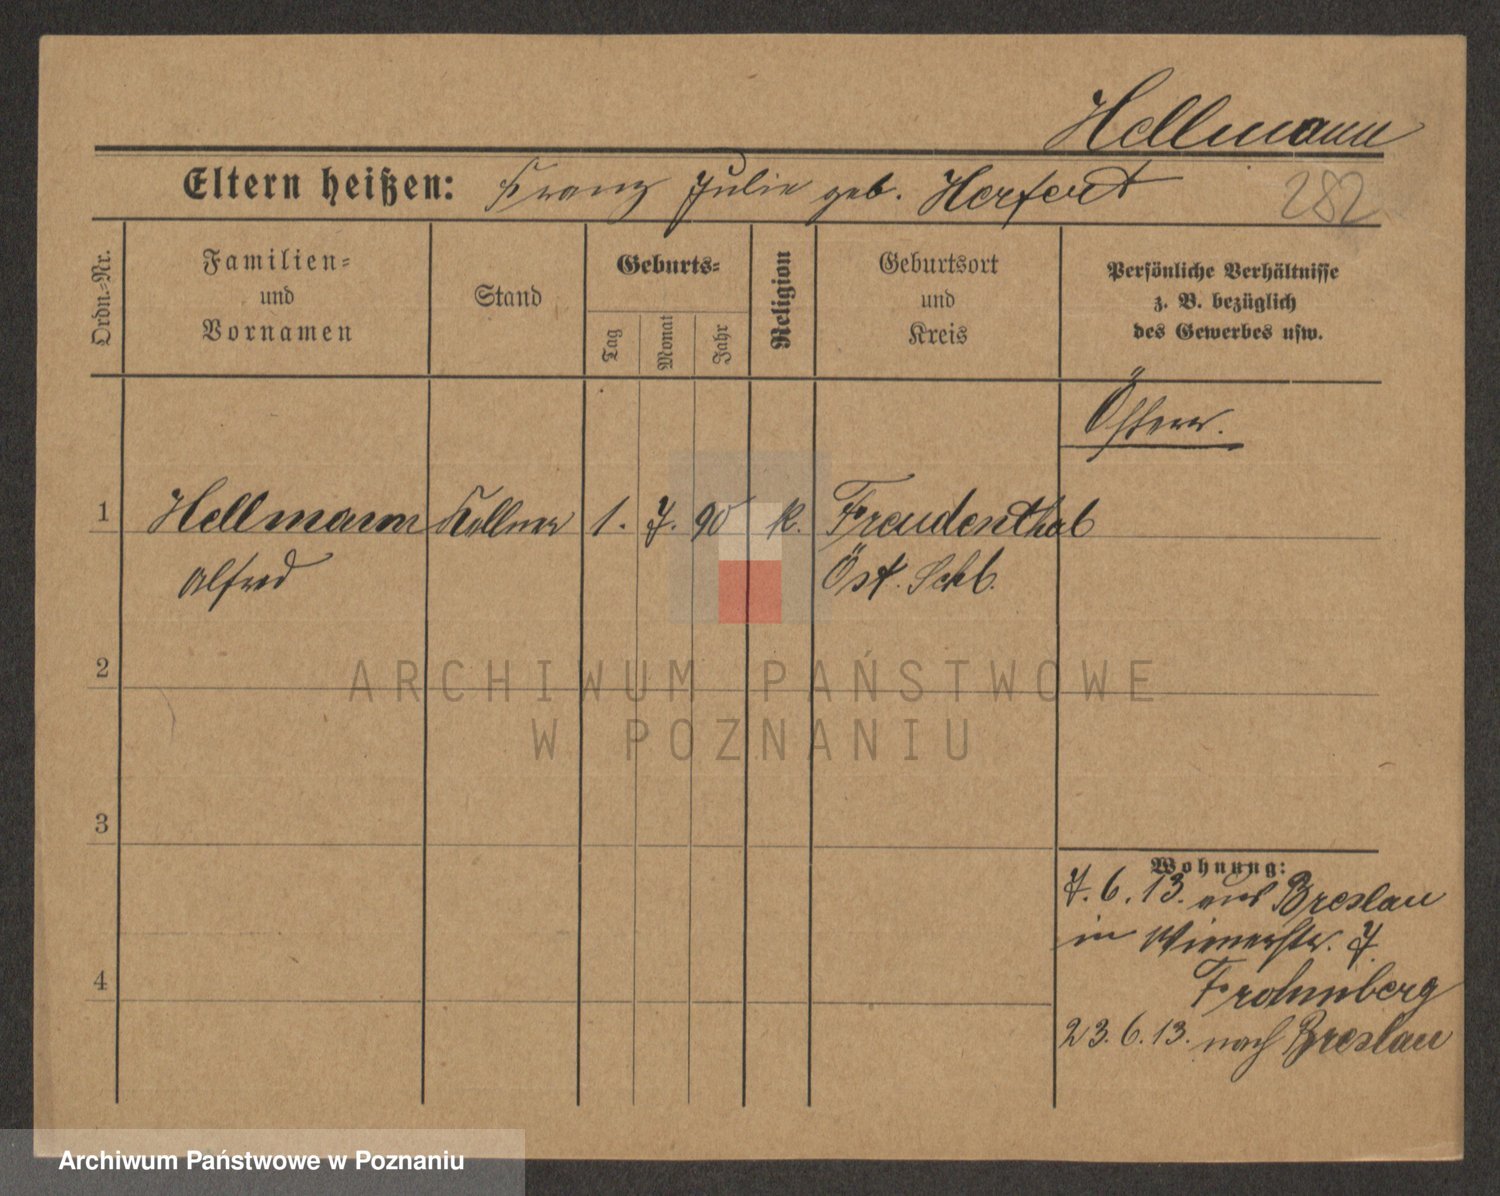 Hellmann
Eltern heißen: Franz Julie geb. Herfert
282
Ordn.=Nr.
Familien=
und
Vornamen
Stand
Geburts=
Tag
Monat
Jahr
Religion
Geburtsort
und
Kreis
Persönliche Verhältnisse
z. B. bezüglich
des Gewerbes usw.
Österr.
1 Hellmann Kellner 1. 7. 90 k. Freudenthal
Alfred Öst. Schl.
2
3
4
Wohnung:
7. 6. 13. aus Breslau
in Wienerstr. 7
Frohnberg
23. 6. 13. nach Breslau
ARCHIWUM PAŃSTWOWE
W POZNANIU
Archiwum Państwowe w Poznaniu